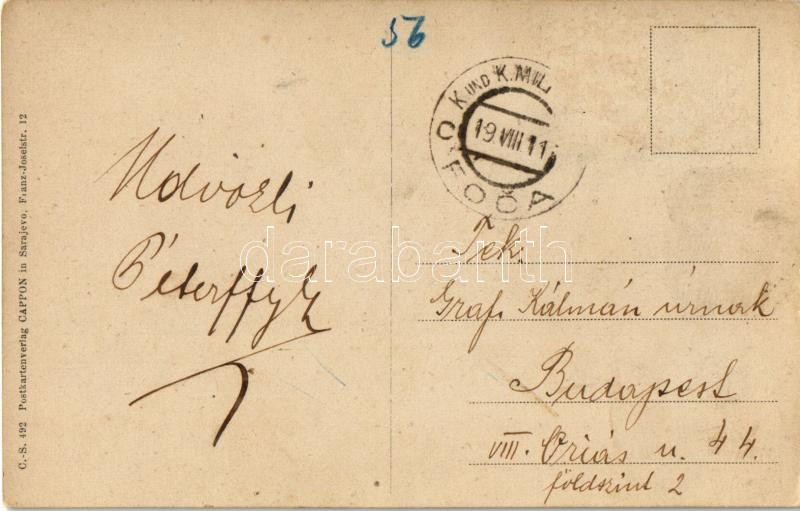 56
C.-S. 492 Postkartenverlag CAPPON in Sarajevo, Franz-Josefstr. 12
K UND K. MIL
19 VIII 11
FOČA
Üdvözli
Péterffy
Tek.
Graf Kálmán úrnak
Budapest
VIII. Óriás u. 44.
földszint 2
darabanth